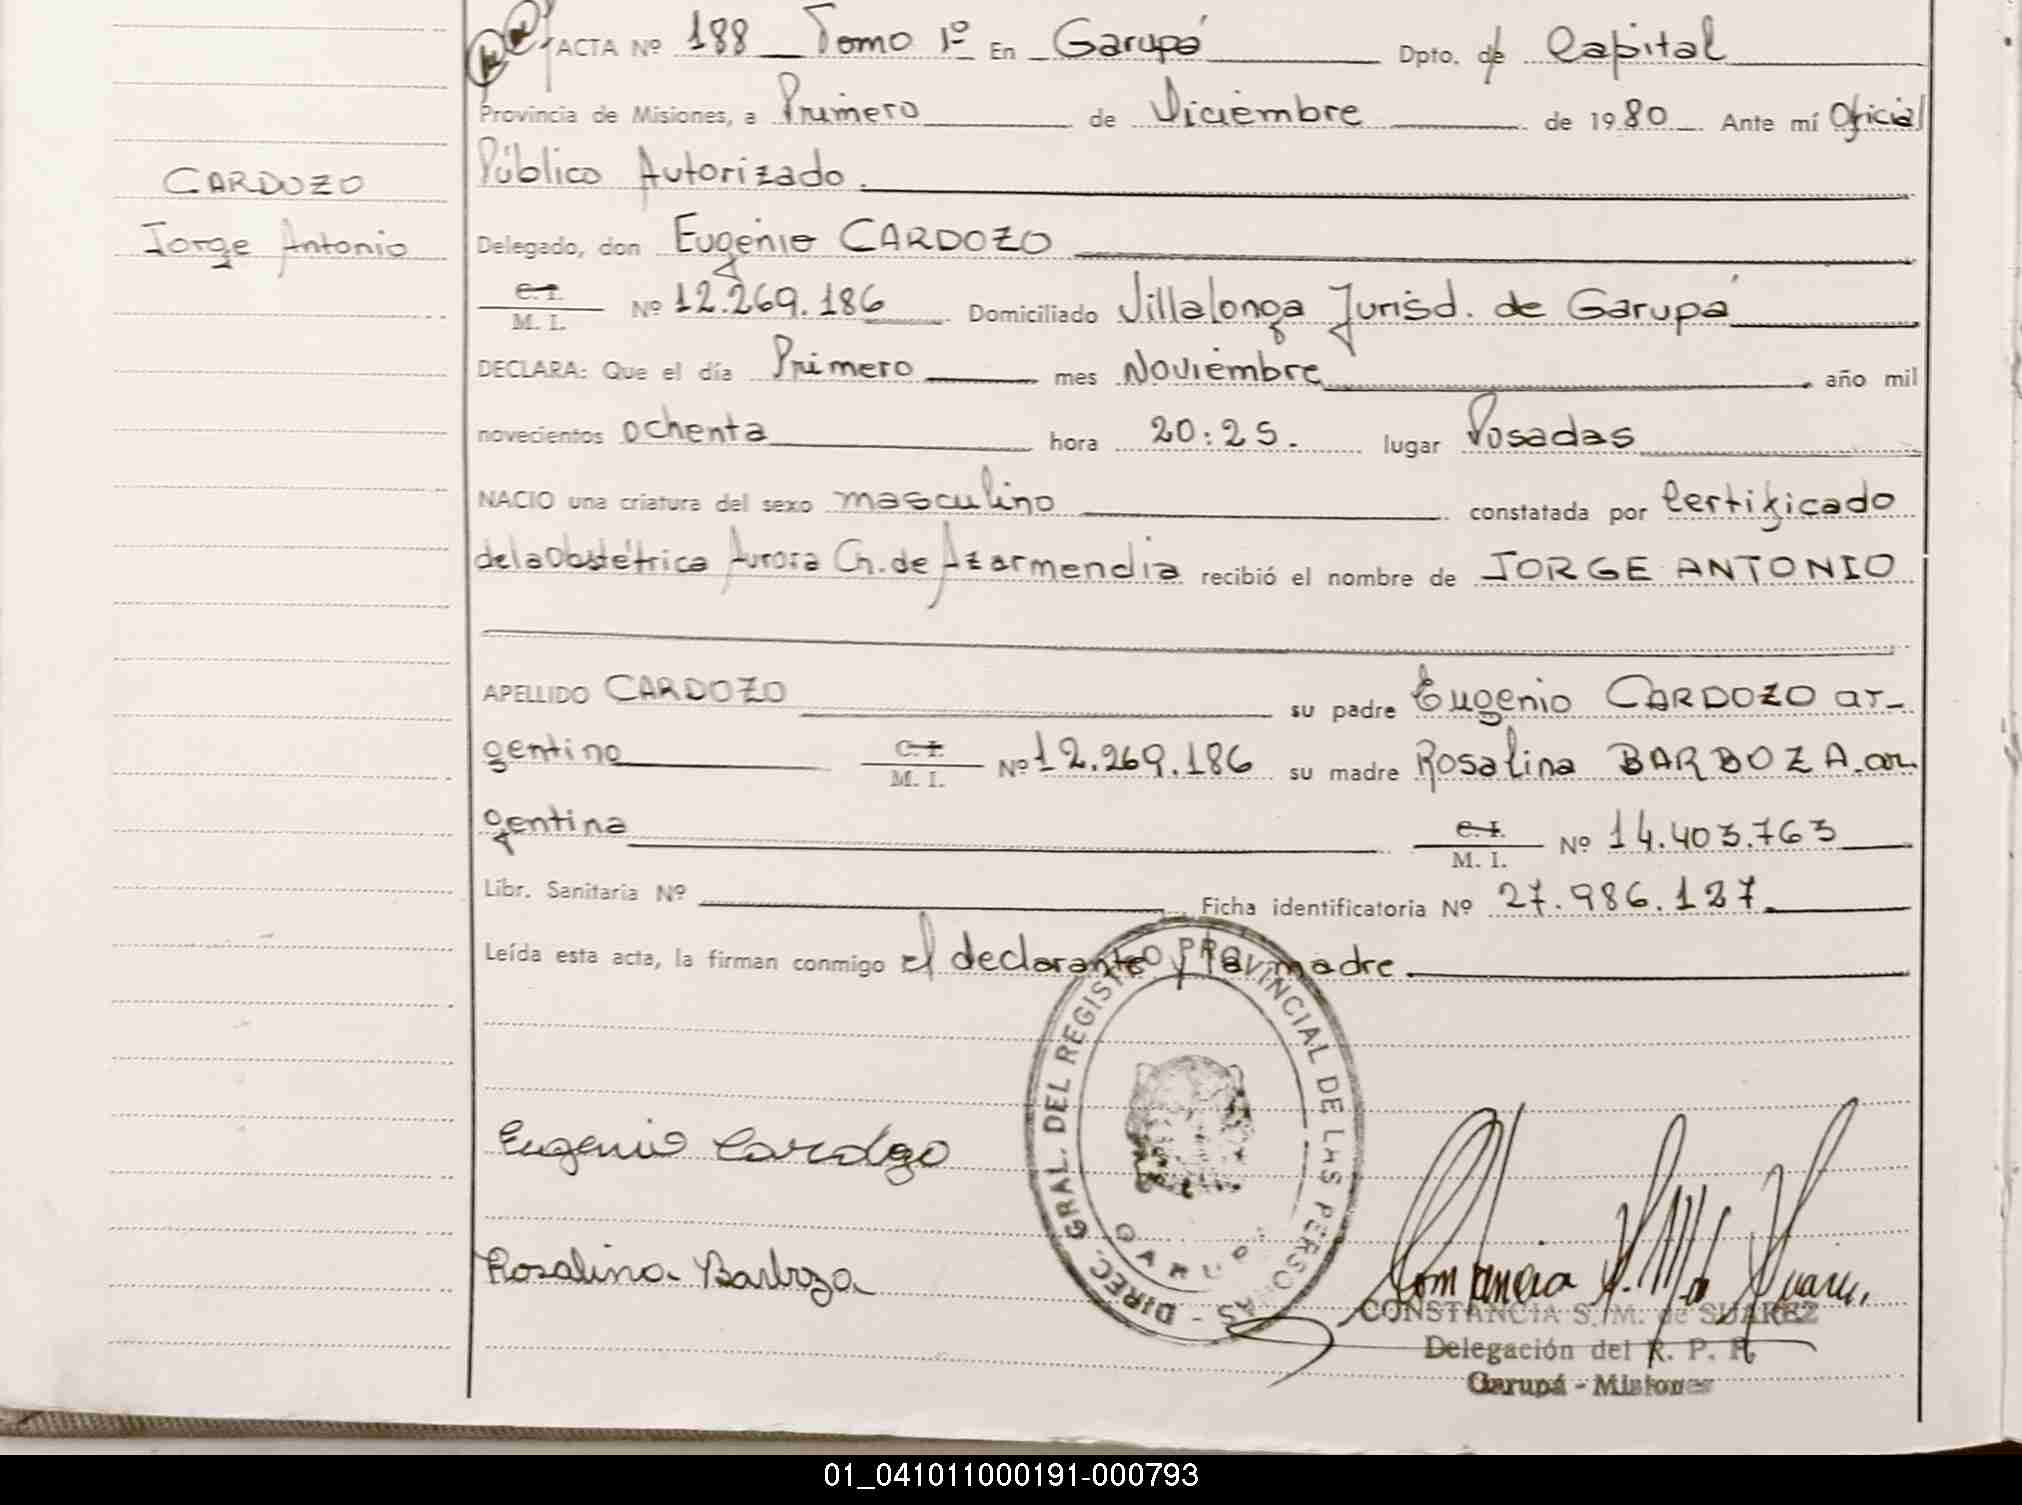 ACTA Nº 188 Tomo 1º En Garupá Dpto. de Capital
Provincia de Misiones, a Primero de Diciembre de 1980 Ante mí Oficial
Público Autorizado.
CARDOZO
Jorge Antonio
Delegado, don Eugenio CARDOZO
C. I.
M. I. Nº 12.269.186 Domiciliado Villalonga Jurisd. de Garupá
DECLARA: Que el día Primero mes Noviembre año mil
novecientos ochenta hora 20:25. lugar Posadas
NACIO una criatura del sexo masculino constatada por Certificado
de la Obstétrica Aurora Ch. de Azarmendia recibió el nombre de JORGE ANTONIO
APELLIDO CARDOZO su padre Eugenio CARDOZO ar-
gentino C. I. M. I. Nº 12.269.186 su madre Rosalina BARBOZA. ar-
gentina C. I. M. I. Nº 14.403.763
Libr. Sanitaria Nº Ficha identificatoria Nº 27.986.127
Leída esta acta, la firman conmigo el declarante y la madre
DIREC. GRAL. DEL REGISTRO PROVINCIAL DE LAS PERSONAS -
GARUPÁ
Eugenio Cardozo
Rosalina Barboza
CONSTANCIA S. M. de SUAREZ
Delegación del R. P. P.
Garupá - Misiones
01_041011000191-000793